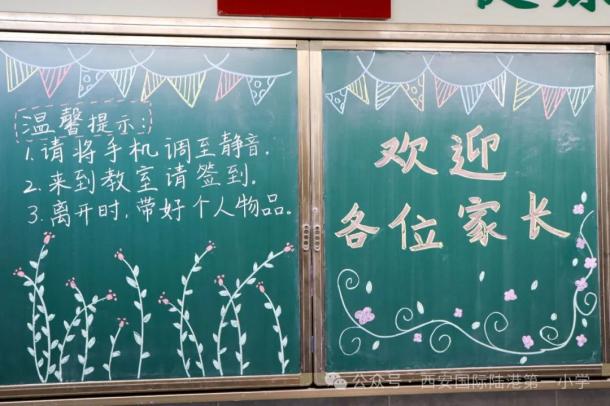 温馨提示:
1.请将手机调至静音.
2.来到教室请签到.
3.离开时,带好个人物品。
欢迎
各位家长
公众号·西安国际陆港第一小学